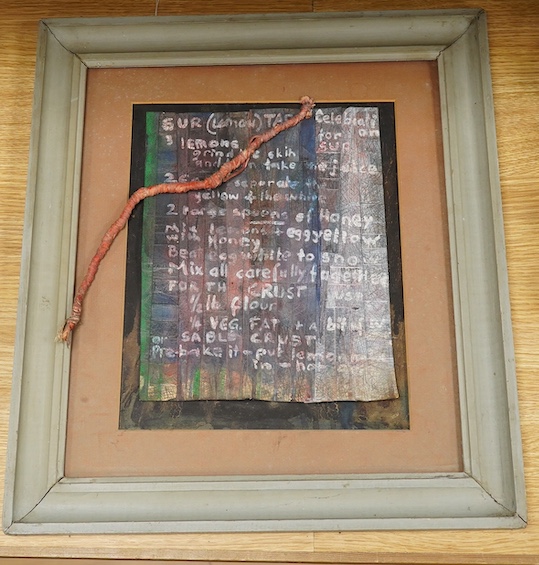 SUR (Lemon) Celebrati
3 lemons, for on
grind skin SUR
and take the juice
2 separate the
yellow & the white
2 large spoons of Honey
Mix lemons + egg yellow
with honey
Beat egg white to snow
Mix all carefully together
FOR TH CRUST USE
1/2 lb flour
1/4 VEG. FAT + a bit of
or SABLE CRUST
Pre-bake it - put lemon
in - hot